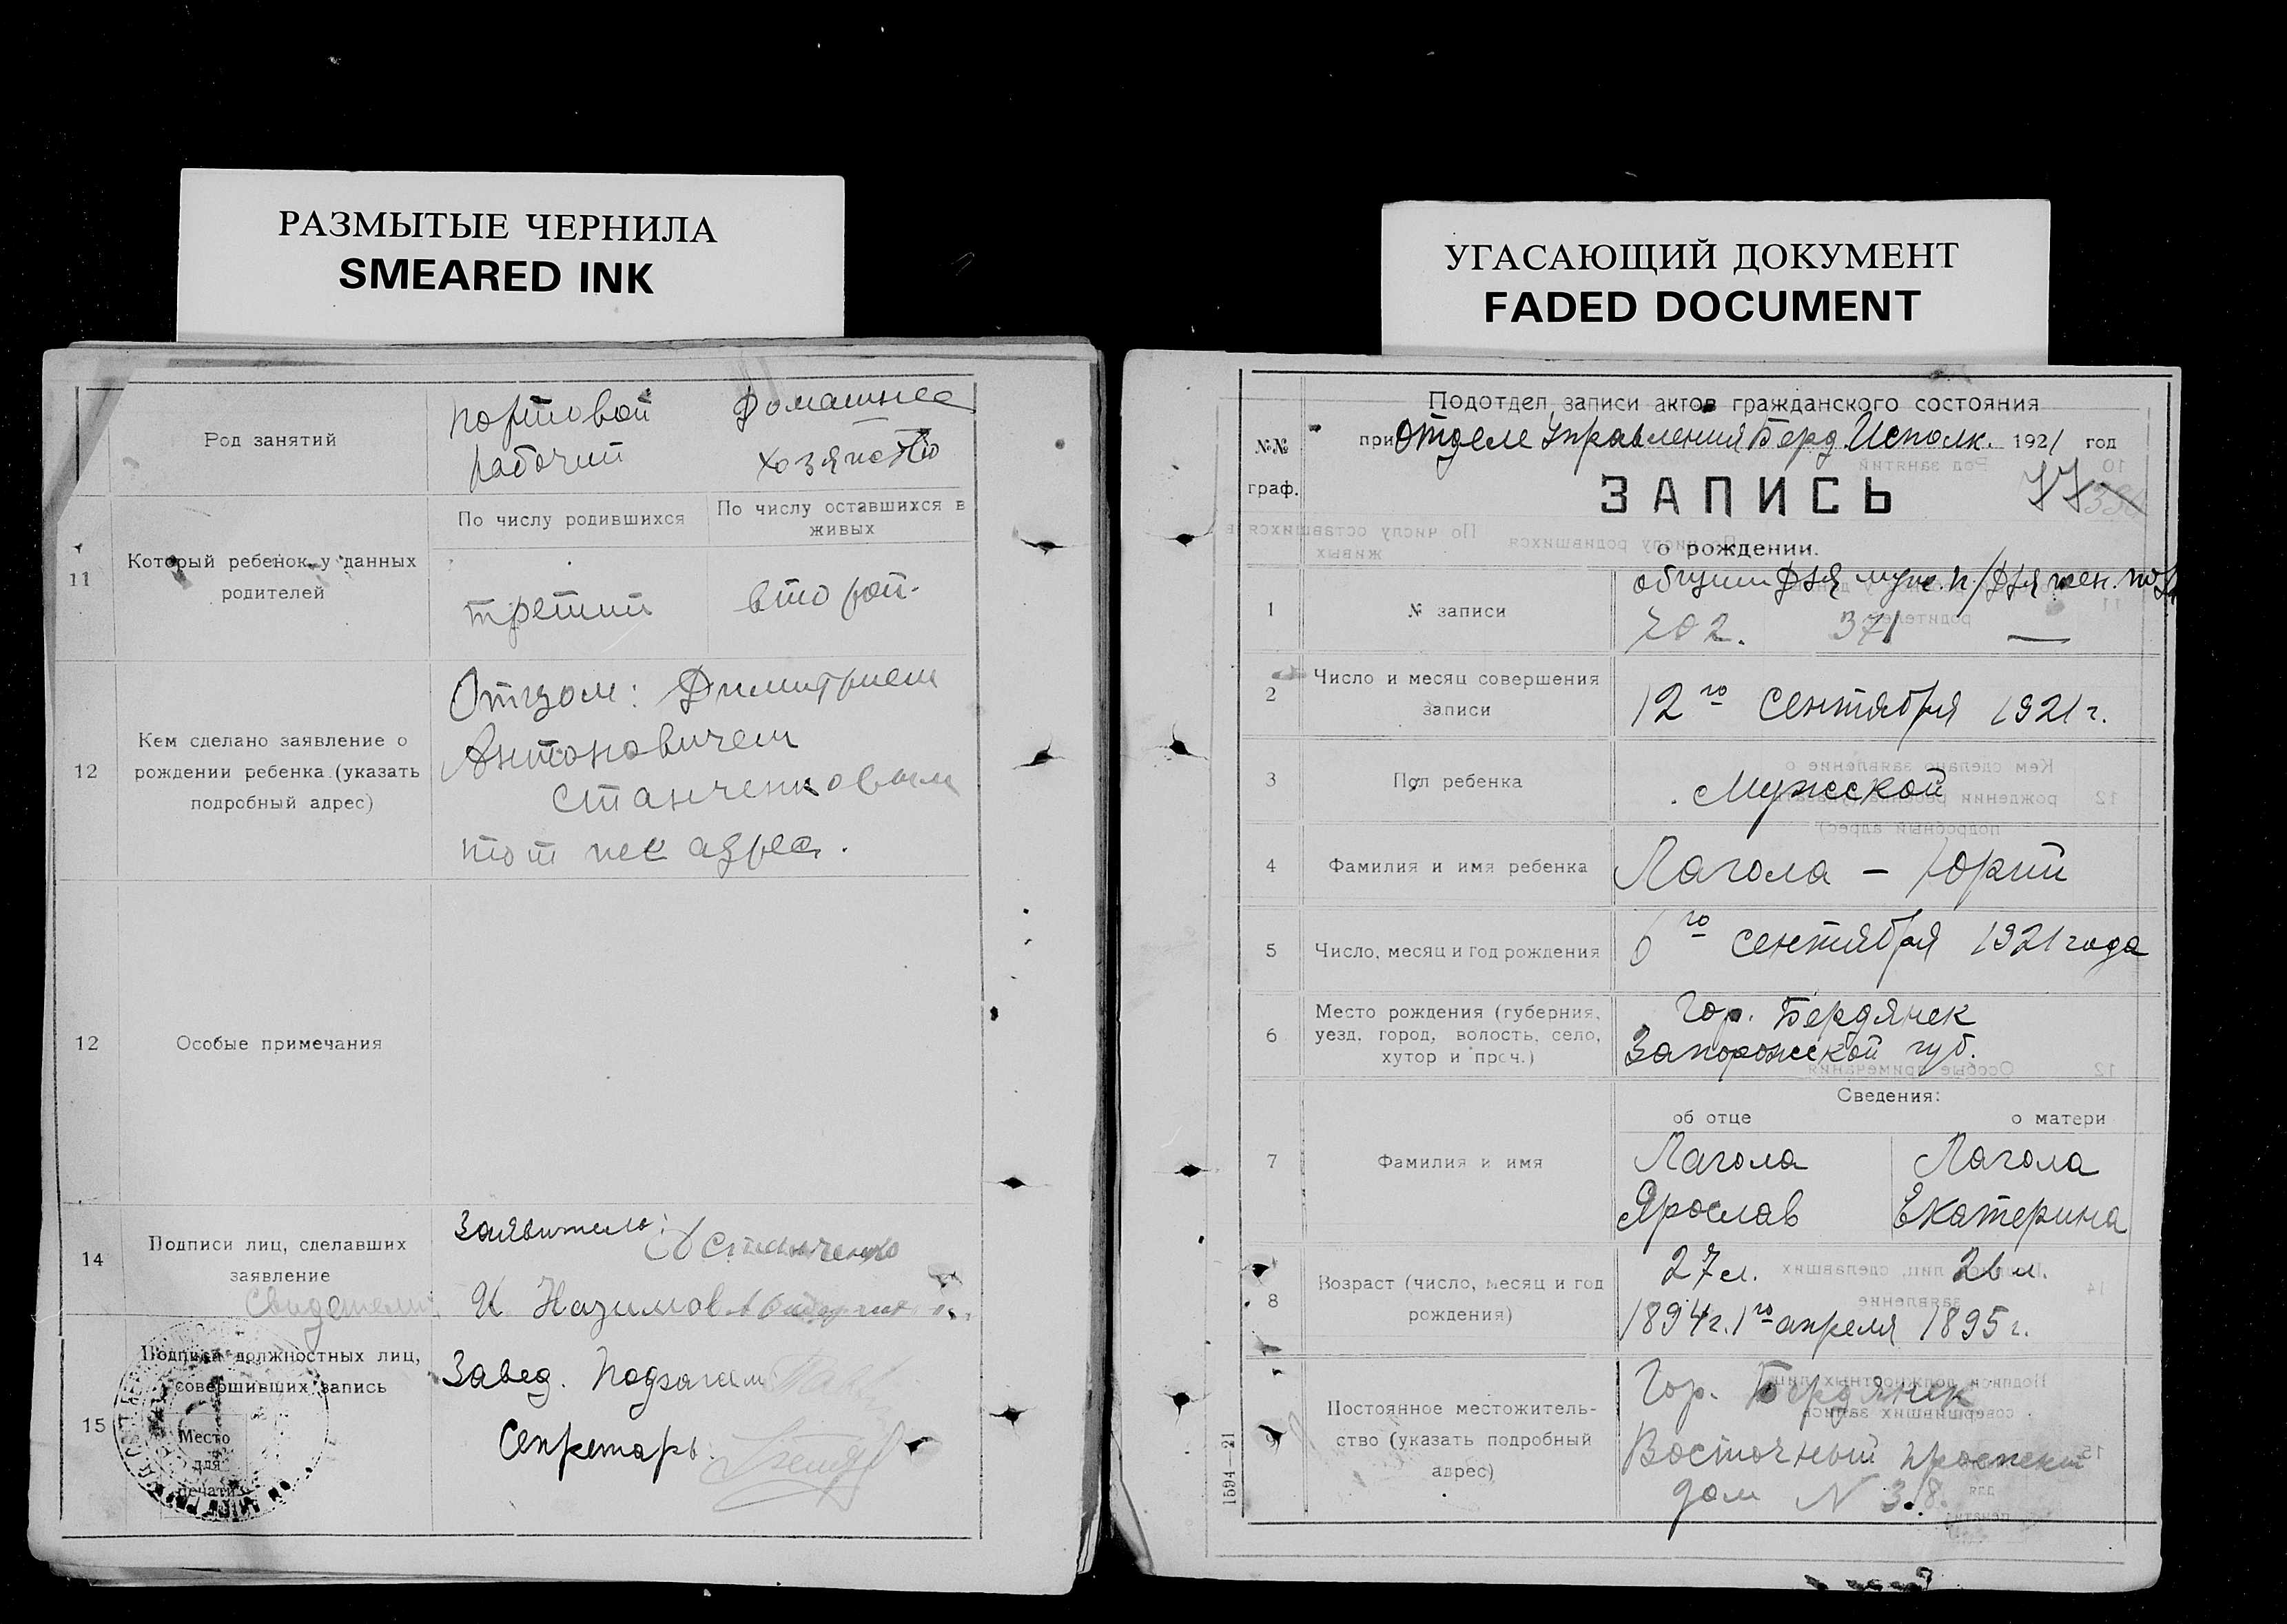 РАЗМЫТЫЕ ЧЕРНИЛА
SMEARED INK
Род занятий
портовой рабочий
Домашнее хозяйство
11
Который ребенок у данных родителей
По числу родившихся
По числу оставшихся в живых
третий
второй.
12
Кем сделано заявление о рождении ребенка (указать подробный адрес)
Отцом: Димитрием
Антоновичем
Станченковым
тот же адрес.
12
Особые примечания
14
Подписи лиц, сделавших заявление
Свидетели:
Заявитель:
Станченко
И Назимов
15
Подписи должностных лиц, совершивших запись
Место для печати
Завед. Подзагсом
Секретарь:
УГАСАЮЩИЙ ДОКУМЕНТ
FADED DOCUMENT
Подотдел записи актов гражданского состояния
при Отделе Управления Берд Исполк. 1921 год
№№ граф.
ЗАПИСЬ
77
о рождении.
1
№ записи
общий для муж. п. / для жен. пола
702. 371 —
2
Число и месяц совершения записи
12го сентября 1921 г.
3
Пол ребенка
Мужской
4
Фамилия и имя ребенка
Лагола – Юрий
5
Число, месяц и год рождения
6го сентября 1921 года
6
Место рождения (губерния, уезд, город, волость, село, хутор и проч.)
Гор. Бердянск
Запорожской губ.
Сведения:
об отце
о матери
7
Фамилия и имя
Лагола Ярослав
Лагола Екатерина
8
Возраст (число, месяц и год рождения)
27 л. 26 л.
1894 г. 1го апреля 1895 г.
9
Постоянное местожительство (указать подробный адрес)
Гор. Бердянск
Восточный проспект
дом № 38.
1594—21